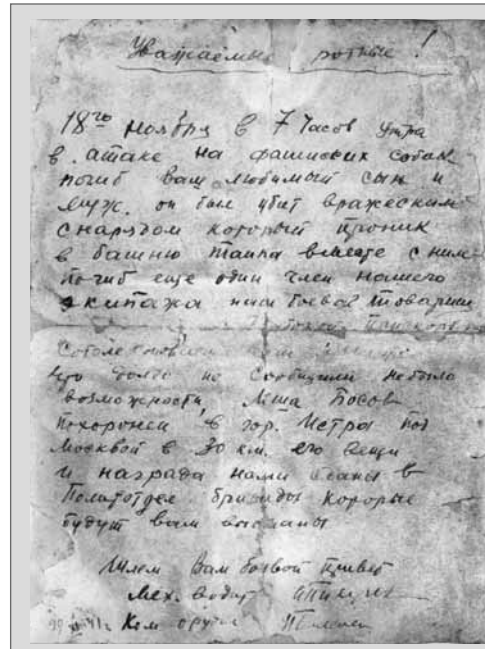 Уважаемые родные!
18го ноября в 7 часов утра
в атаке на фашиских собак
погиб ваш любимый сын и
муж. он был убит вражеским
снарядом который проник
в башню танка вместе с ним
погиб еще один член нашего
экипажа наш боевой товарищ
что долго не сообщили небыло
возможности, Леша Босов
похоронен в гор. Истры под
Москвой в 30 км. его вещи
и награда нами сданы в
Политотдел бригады которые
будут вам высланы
Шлем Вам боевой привет
Мех. водит
Ком орудия